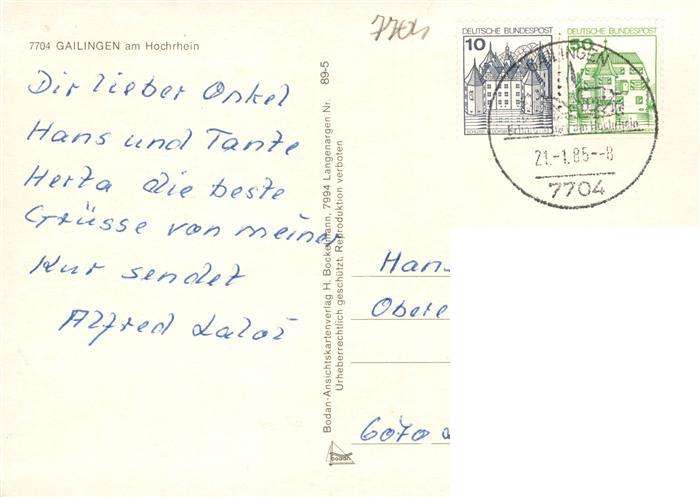 7704 GAILINGEN am Hochrhein
7704
Dir lieber Onkel
Hans und Tante
Herta die beste
Grüsse von meiner
Kur sendet
Alfred
Bodan-Ansichtskartenverlag H. Bockelmann, 7994 Langenargen Nr. 89-5
Urheberrechtlich geschützt. Reproduktion verboten
bodan
DEUTSCHE BUNDESPOST
10
DEUTSCHE BUNDESPOST
50
GAILINGEN
am Hochrhein
21.-1.85.--8
7704
Han
Obere
6070